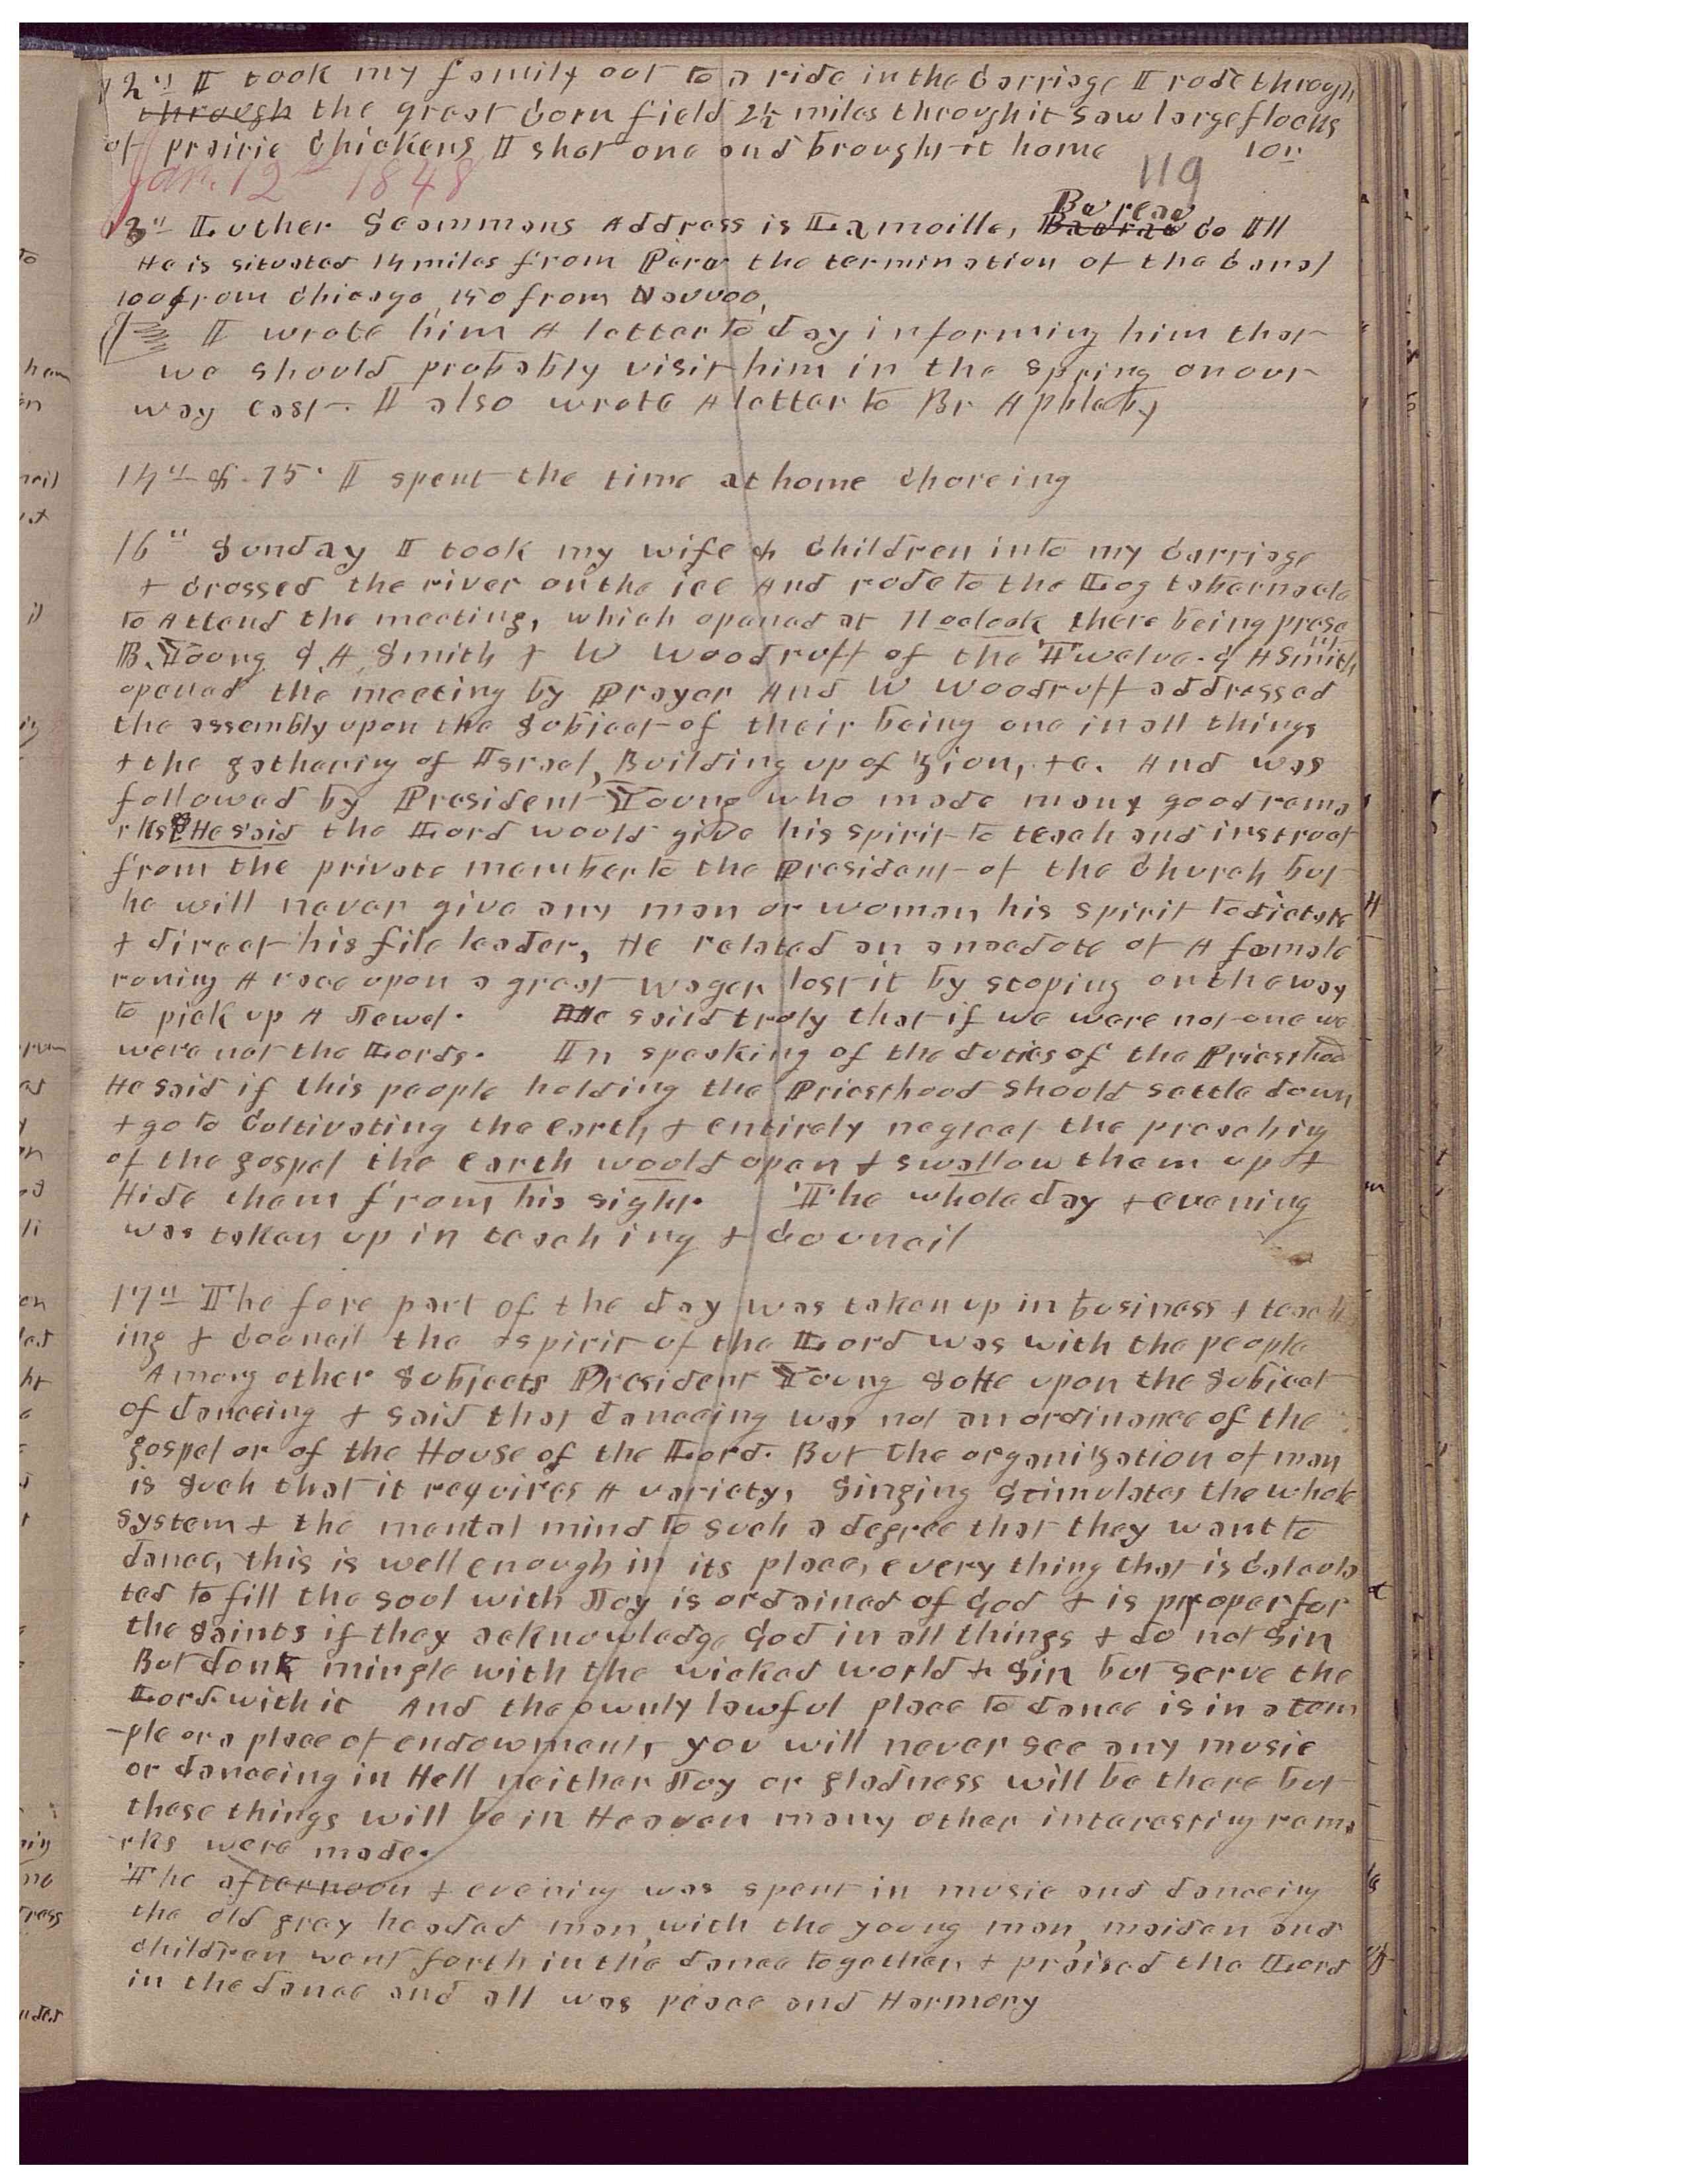 12th I took my family out to a ride in the Carriage I rode through
through the great Corn field 2½ miles through it saw large flocks
of prairie Chickens I shot one and brought it home 10 m
Jan. 12th 1848 119
13th Luther Scammans Address is Lamoille, Bureau Co Ill
He is situated 14 miles from Peru the termination of the Canal
100 from Chicago, 150 from Nauvoo,
I wrote him A letter to day informing him that
we should probably visit him in the spring on our
way east. I also wrote A letter to Br Appleby
14th & 15. I spent the time at home Choreing
16th Sunday I took my wife & Children into my Carriage
& Crossed the river on the ice And rode to the Log tabernacle
to Attend the meeting, which opened at 11 oclock there being prese
nt
B. Young G A Smith & W Woodruff of the Twelve. G A Smith
opened the meeting by Prayer And W Woodruff addressed
the assembly upon the Subject of their being one in all things
& the gathering of Israel, Building up of Zion, &c. And was
followed by President Young who made many good rema
rks He said the Lord would give his spirit to teach and instruct
from the private member to the President of the Church but
he will never give any man or woman his spirit to dictate
& direct his file leader, He related an anecdote of A female
runing A race upon a great wager lost it by stoping on the way
to pick up A Jewel. He said truly that if we were not one we
were not the Lords. In speaking of the duties of the Priesthood
He said if this people holding the Priesthood should settle down
& go to Cultivating the earth & entirely neglect the preaching
of the gospel the earth would open & swallow them up &
Hide them from his sight. The whole day & evening
was taken up in teaching & Council
17th The fore part of the day was taken up in business & teach
ing & Council the spirit of the Lord was with the people
Among other Subjects President Young Sotte upon the Subject
of danceing & said that danceing was not an ordinance of the
gospel or of the House of the Lord. But the organization of man
is Such that it requires A variety, Singing Stimulates the whole
system & the mental mind to such a degree that they want to
dance, this is well enough in its place, every thing that is Calcula
ted to fill the soul with Joy is ordained of God & is proper for
the Saints if they acknowledge God in all things & do not Sin
But dont mingle with the wicked world & Sin but serve the
Lord with it And the ownly lawful place to dance is in a tem
-ple or a place of endowment, you will never see any music
or danceing in Hell neither Joy or gladness will be there but
these things will be in Heaven many other interesting rema
-rks were made.
The afternoon & evening was spent in music and danceing
the old grey headed man, with the young man, maiden and
children went forth in the dance together & praised the Lord
in the dance and all was peace and Harmony